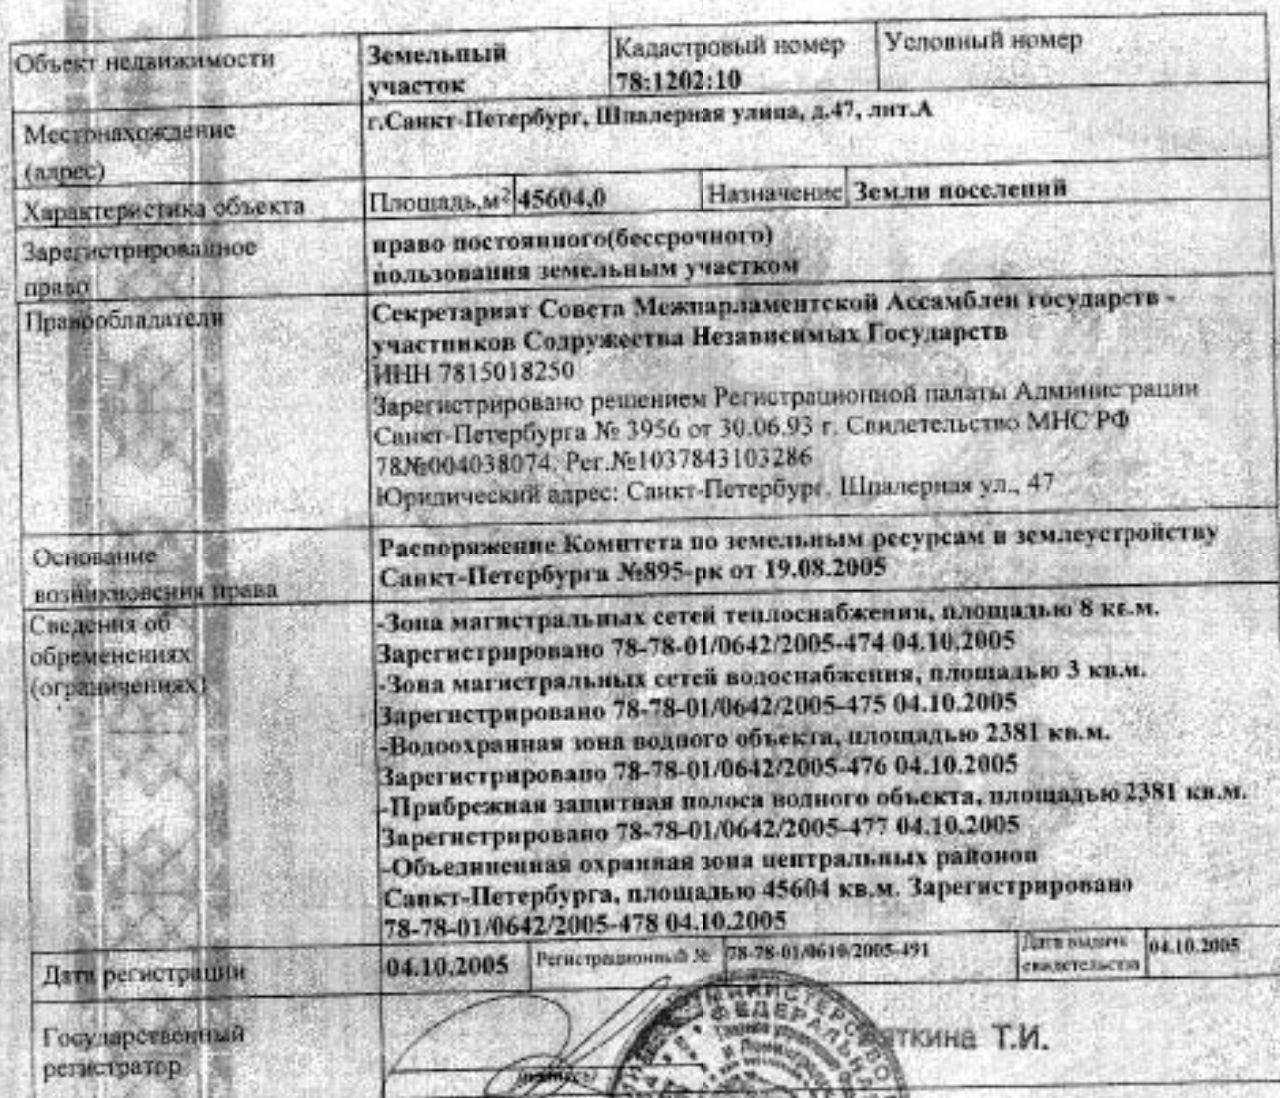 Объект недвижимости
Земельный
участок
Кадастровый номер
78:1202:10
Условный номер
Местонахождение
(адрес)
г.Санкт-Петербург, Шпалерная улица, д.47, лит.А
Характеристика объекта
Площадь,м² 45604,0
Назначение Земли поселений
Зарегистрированное
право
право постоянного(бессрочного)
пользования земельным участком
Правообладатели
Секретариат Совета Межпарламентской Ассамблеи государств -
участников Содружества Независимых Государств
ИНН 7815018250
Зарегистрировано решением Регистрационной палаты Администрации
Санкт-Петербурга № 3956 от 30.06.93 г. Свидетельство МНС РФ
78№004038074, Рег.№1037843103286
Юридический адрес: Санкт-Петербург, Шпалерная ул., 47
Основание
возникновения права
Распоряжение Комитета по земельным ресурсам и землеустройству
Санкт-Петербурга №895-рк от 19.08.2005
Сведения об
обременениях
(ограничениях)
-Зона магистральных сетей теплоснабжения, площадью 8 кв.м.
Зарегистрировано 78-78-01/0642/2005-474 04.10.2005
-Зона магистральных сетей водоснабжения, площадью 3 кв.м.
Зарегистрировано 78-78-01/0642/2005-475 04.10.2005
-Водоохранная зона водного объекта, площадью 2381 кв.м.
Зарегистрировано 78-78-01/0642/2005-476 04.10.2005
-Прибрежная защитная полоса водного объекта, площадью 2381 кв.м.
Зарегистрировано 78-78-01/0642/2005-477 04.10.2005
-Объединенная охранная зона центральных районов
Санкт-Петербурга, площадью 45604 кв.м. Зарегистрировано
78-78-01/0642/2005-478 04.10.2005
Дата регистрации
04.10.2005
Регистрационный №
78-78-01/0610/2005-491
Дата выдачи
свидетельства
04.10.2005
Государственный
регистратор
(подпись)
Т.И.